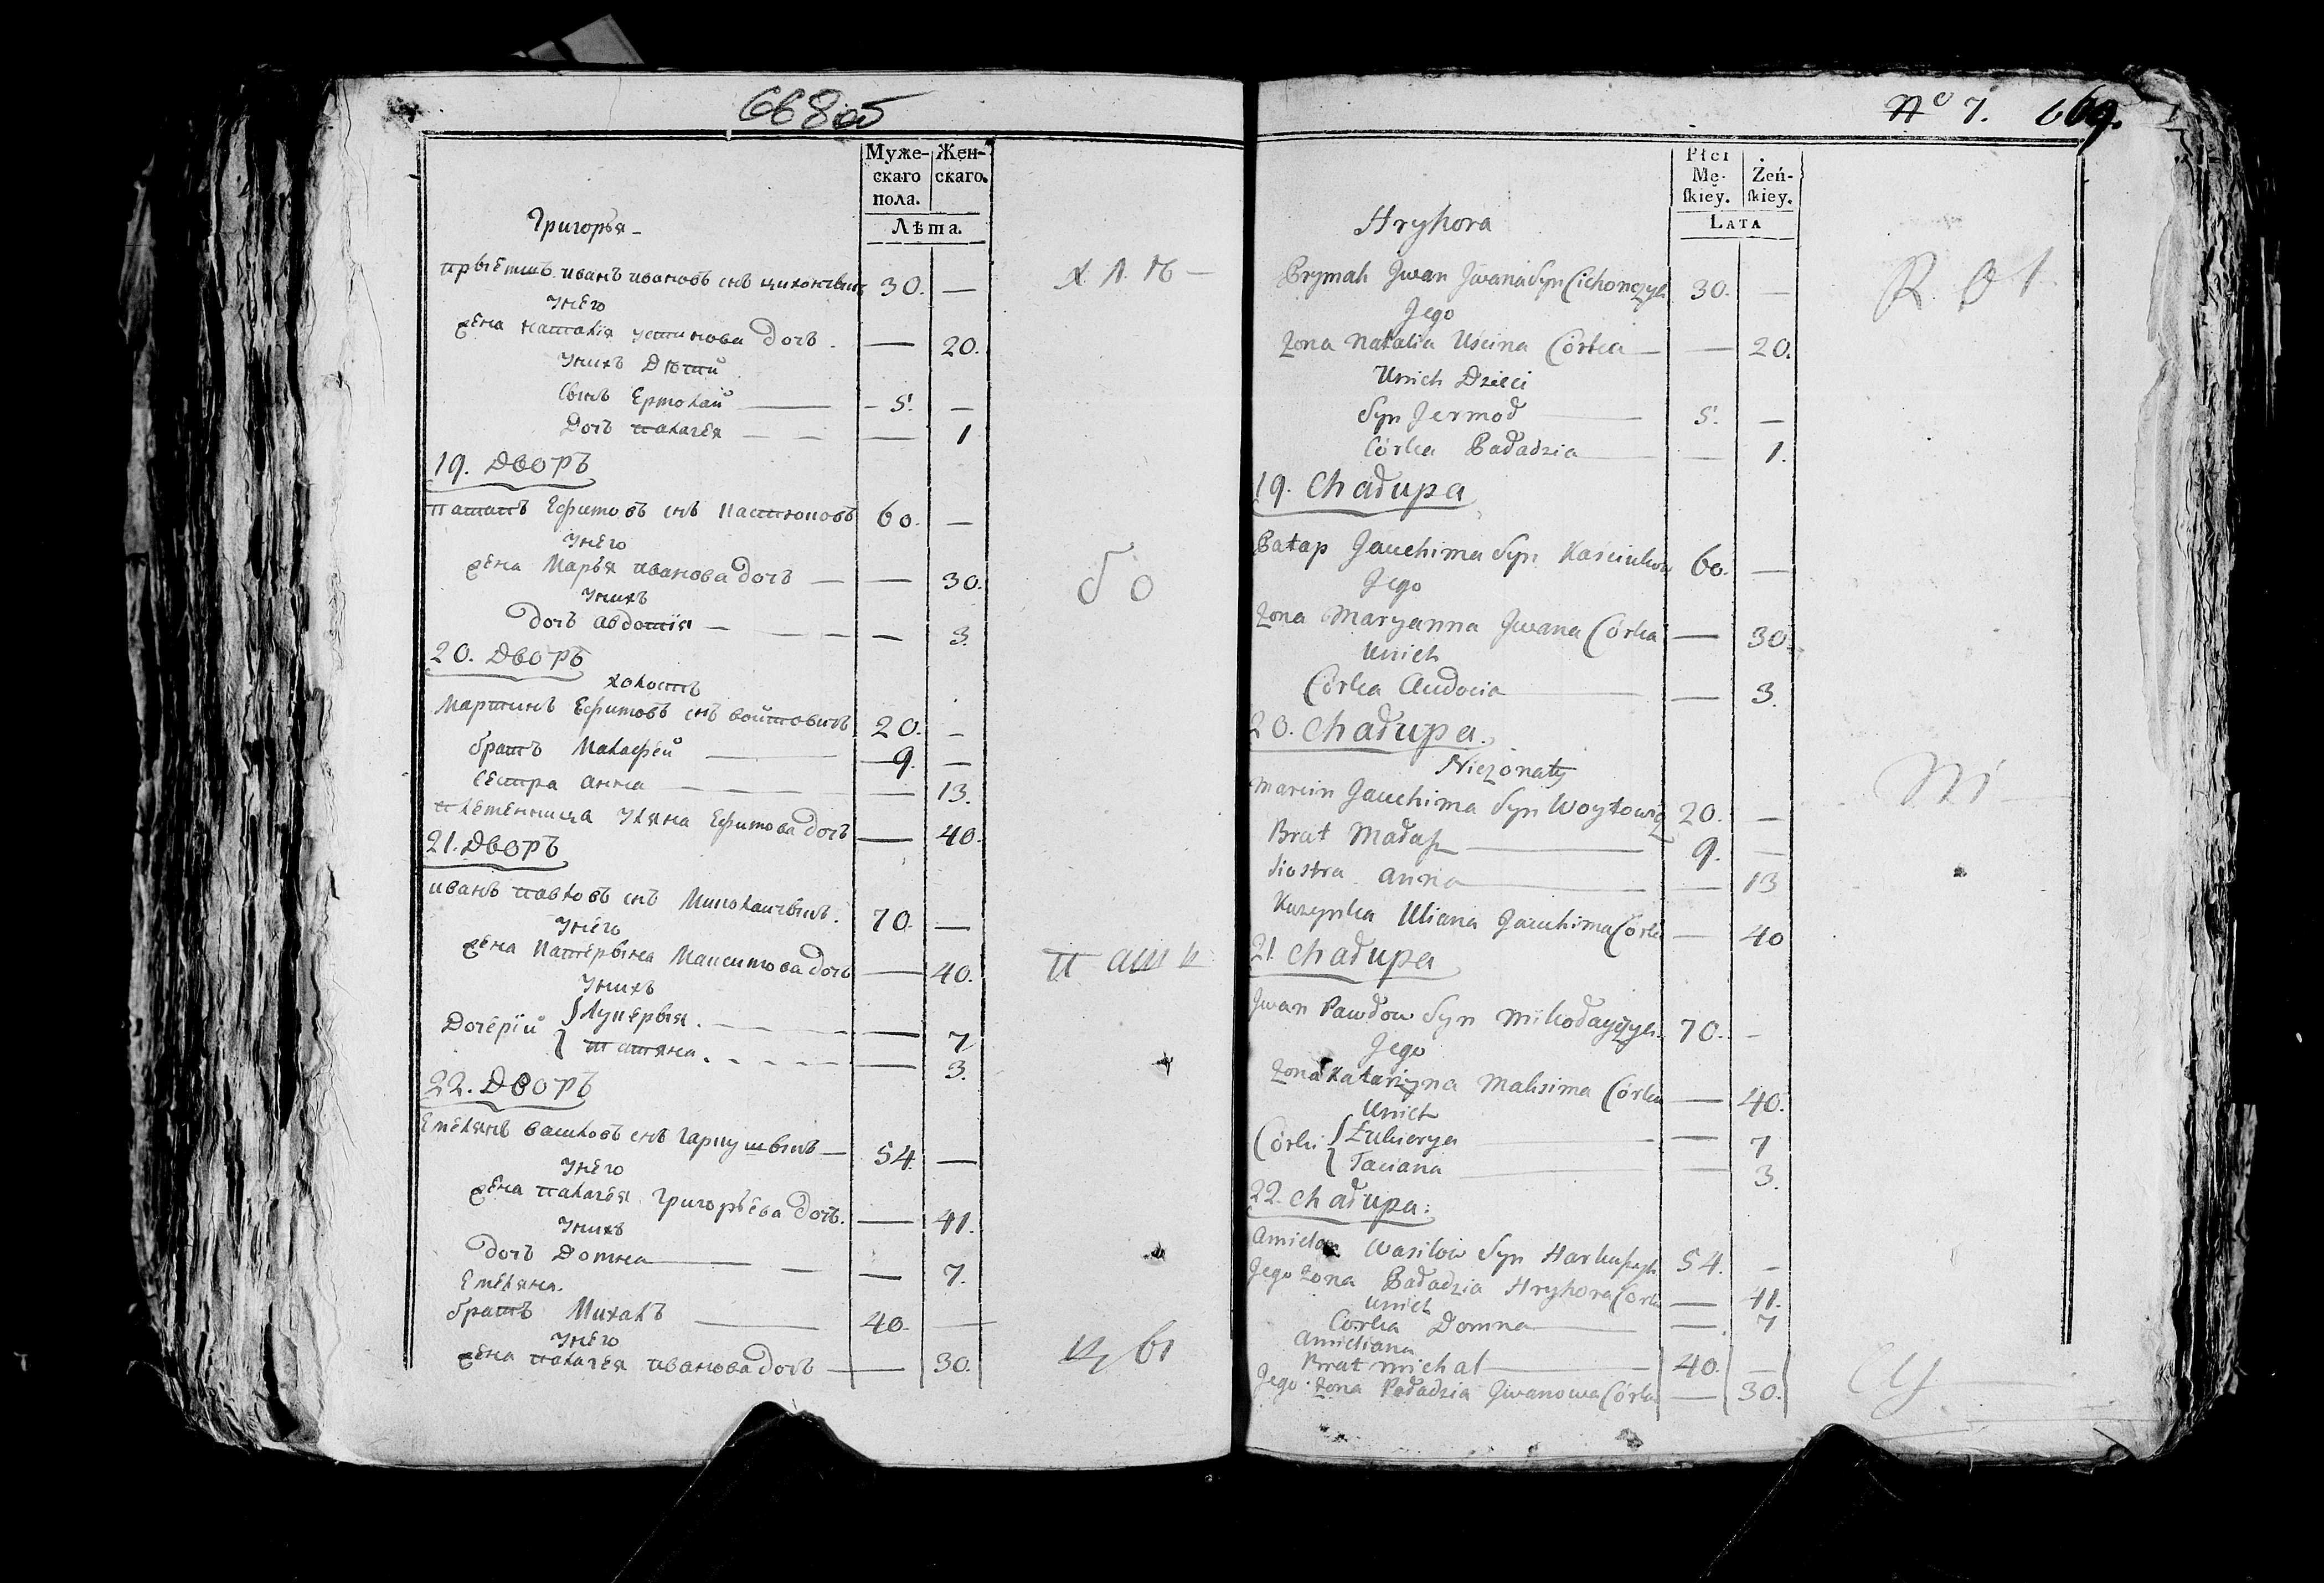 668 об
Муже-
скаго
пола.
Жен-
скаго.
Лѣта.
Григорья
прыемышъ иванъ ивановъ снъ
30. —
унего
жена наталія устинова дочъ . — 20.
унихъ Дѣтий
Сынъ Ермолай — 5. —
Дочъ палагея — — 1
19. Дворъ
патапъ Ефимовъ снъ Кастюковъ 60. —
унего
жена Марья иванова дочъ — — 30.
унихъ
дочъ авдотія — — 3.
20. Дворъ
холостъ
Мартинъ Ефимовъ снъ войтовичъ 20. —
братъ Малафей — 9. —
сестра анна — — 13.
племенница уляна Ефимова дочъ — 40.
21. Дворъ
иванъ павловъ снъ Миколайчыкъ. 70. —
унего
жена Катерына Максимова дочъ — 40.
унихъ
Дочерій { Лукерыя. — 7
татяна. — 3.
22. Дворъ
Емелянъ василовъ снъ гаркушыкъ — 54. —
унего
жена палагея григорьева дочъ. — 41.
унихъ
дочъ Домна — — 7.
Емеляна.
братъ Михалъ — 40. —
унего
жена палагея иванова дочъ — — 30.
х л ѣ —
б о
п аш к
ц ы
No 7. 669.
Płci
Mę-
ſkiey.
Żeń-
ſkiey.
Lata
Hryhora
Prymak Jwan Jwana Syn Cichonczyk 30. —
Jego
żona Natalia Uścina Córka — — 20.
Unich Dzieci
Syn Jermoł — 5. —
Córka Paładzia — — 1.
19. Chałupa
Patap Jauchima Syn Kaściukow 60. —
Jego
żona Maryanna Jwana Córka — 30.
Unich
Córka Audocia — — 3.
20. Chałupa.
Nieżonaty
Marcin Jauchima Syn Woytowicz 20. —
Brat Małaſz — 9. —
Siostra anna — — 13
Kuzynka Uliana Jauchima Córka — 40
21. Chałupa
Jwan Pawłow Syn Mikołayczyk. 70. —
Jego
żona Katarzyna Maksima Córka — 40.
Unich
Córki { Łukierya — — 7
Taciana — — 3.
22. Chałupa:
Amielan Wasilow Syn Harkuſzyk 54. —
Jego żona Paładzia Hryhora Córka — 41.
Unich
Córka Domna — — 7
Amieliana
Brat Michał — 40. —
Jego żona Paładzia Jwanowa Córka — 30.
R o l
ni
cy